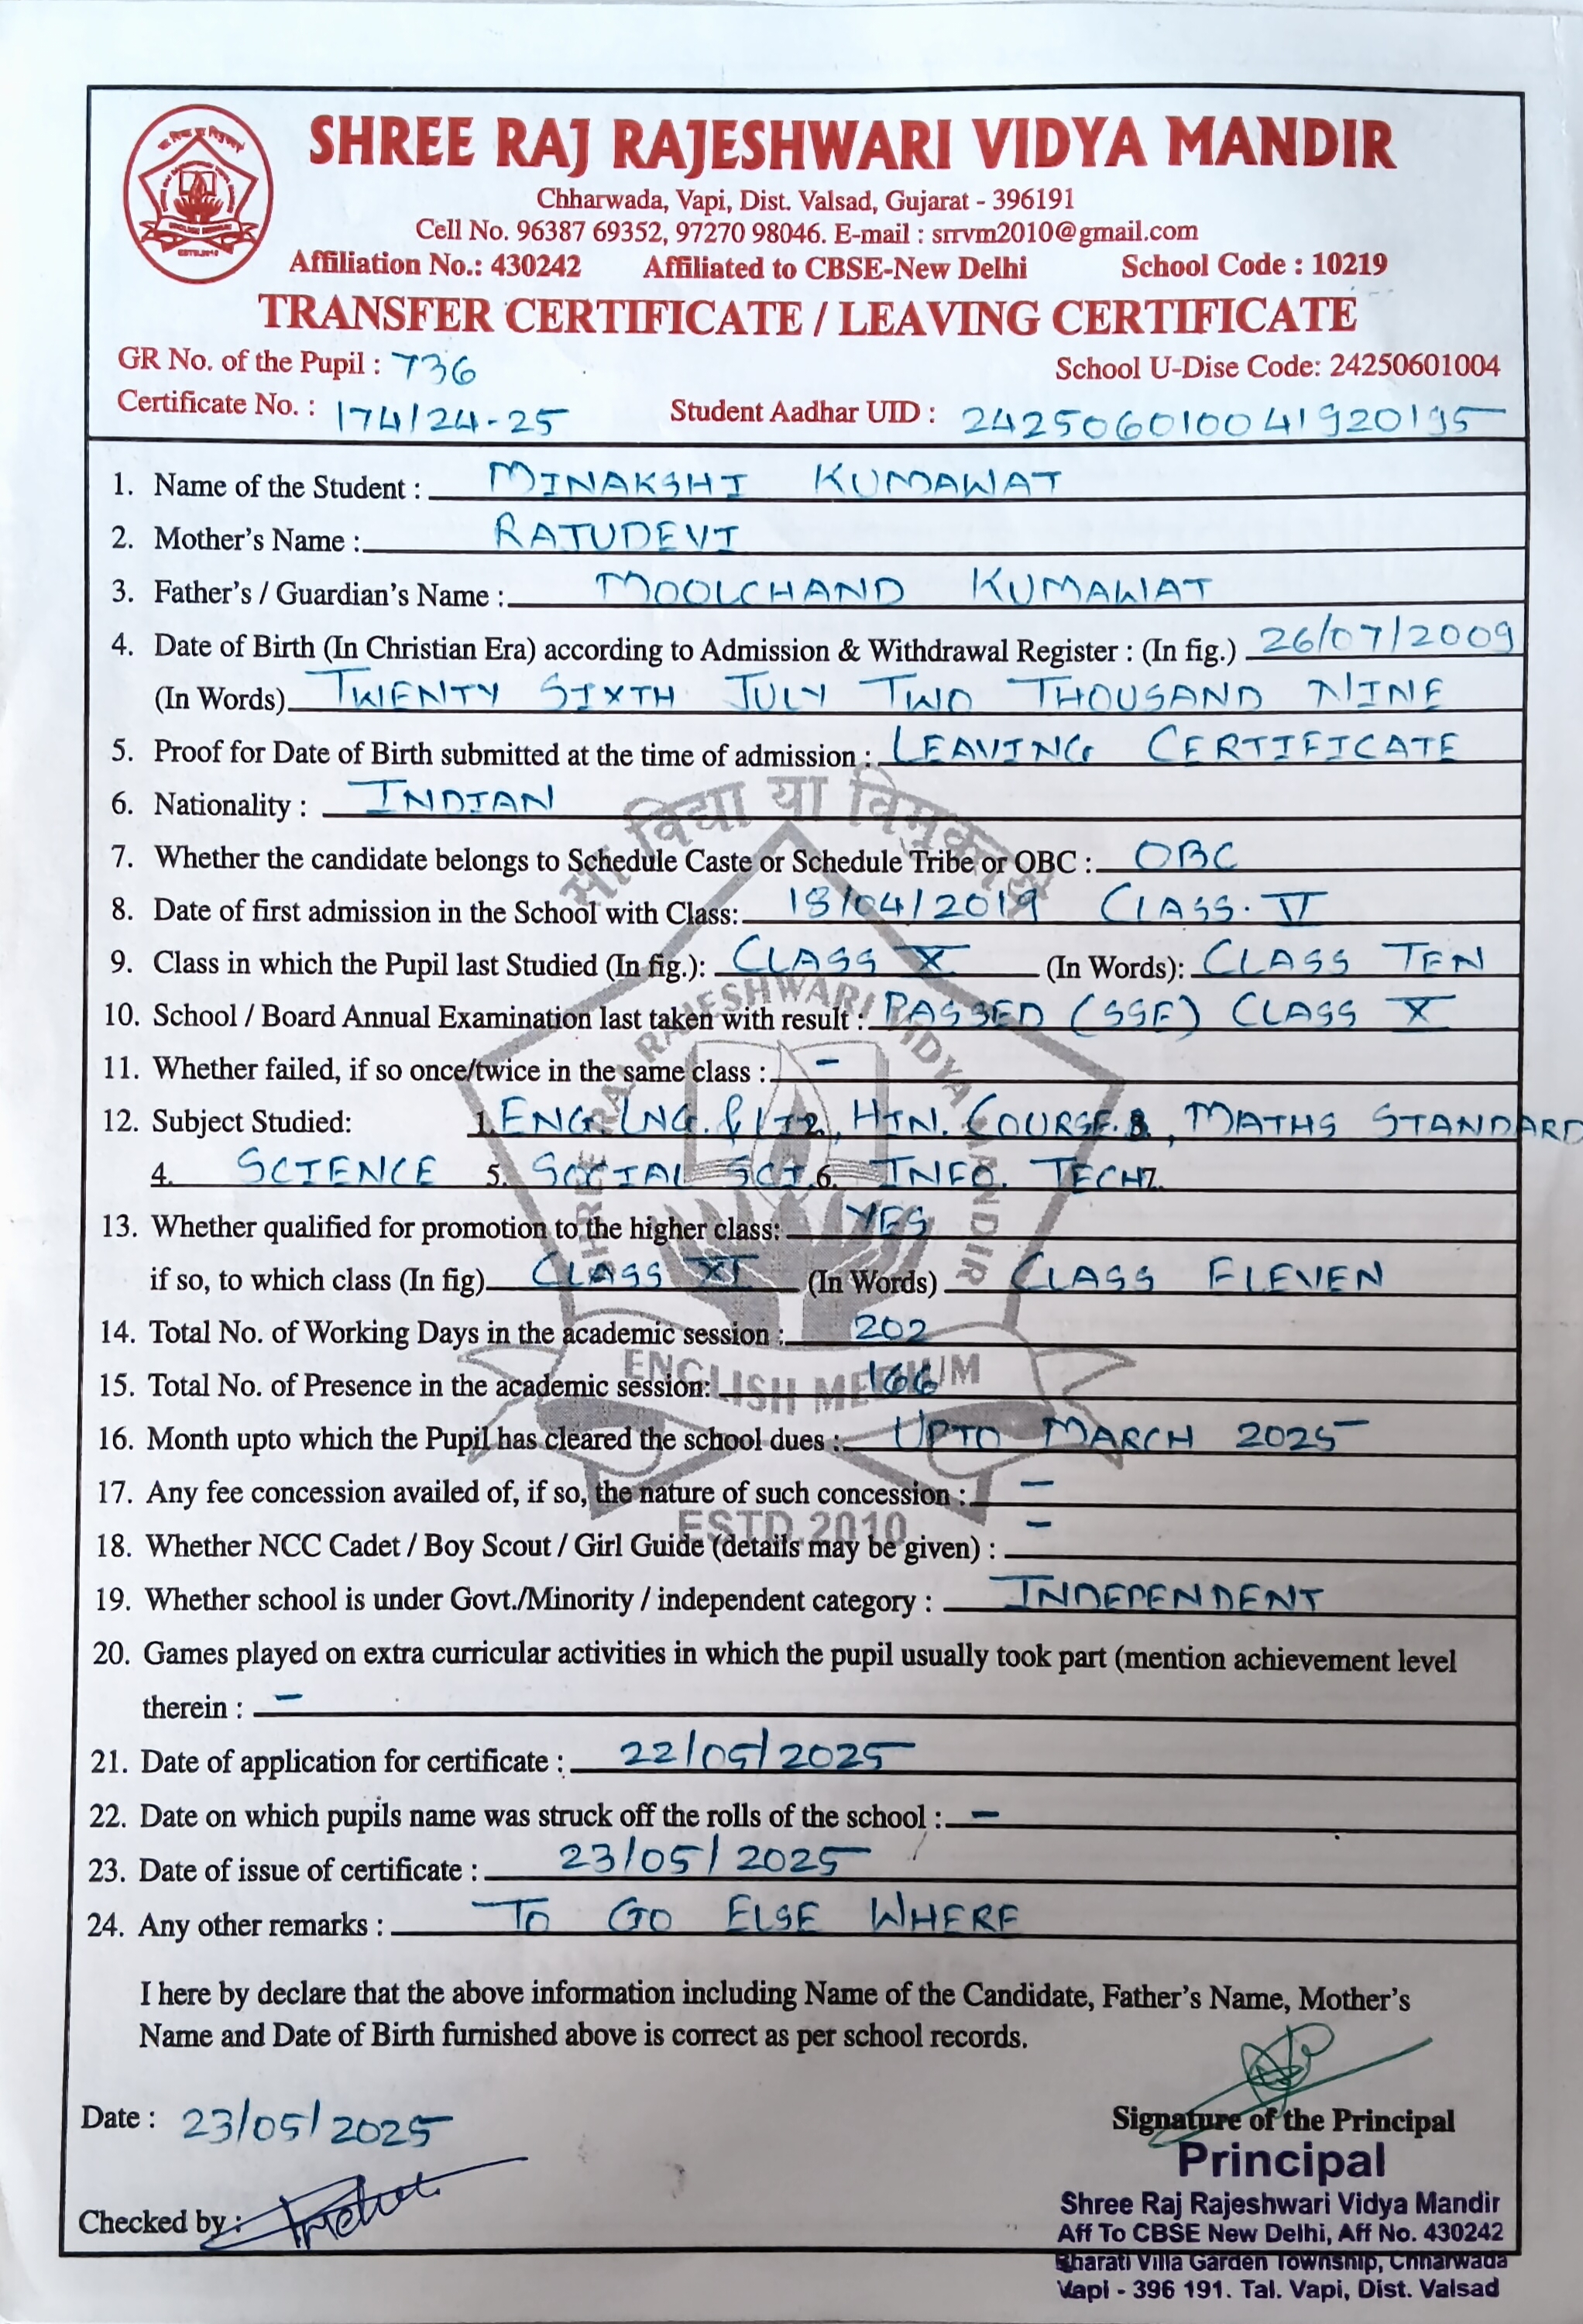 SHREE RAJ RAJESHWARI VIDYA MANDIR
Chharwada, Vapi, Dist. Valsad, Gujarat - 396191
Cell No. 96387 69352, 97270 98046. E-mail : srrvm2010@gmail.com
Affiliation No.: 430242 Affiliated to CBSE-New Delhi School Code : 10219
TRANSFER CERTIFICATE / LEAVING CERTIFICATE
GR No. of the Pupil : 736 School U-Dise Code: 24250601004
Certificate No. : 174/24-25 Student Aadhar UID : 242506010041920195
1. Name of the Student : MINAKSHI KUMAWAT
2. Mother's Name : RAJUDEVI
3. Father's / Guardian's Name : MOOLCHAND KUMAWAT
4. Date of Birth (In Christian Era) according to Admission & Withdrawal Register : (In fig.) 26/07/2009
(In Words) TWENTY SIXTH JULY TWO THOUSAND NINE
5. Proof for Date of Birth submitted at the time of admission : LEAVING CERTIFICATE
6. Nationality : INDIAN
7. Whether the candidate belongs to Schedule Caste or Schedule Tribe or OBC : OBC
8. Date of first admission in the School with Class: 18/04/2019 CLASS. V
9. Class in which the Pupil last Studied (In fig.): CLASS X (In Words): CLASS TEN
10. School / Board Annual Examination last taken with result : PASSED (SSE) CLASS X
11. Whether failed, if so once/twice in the same class : -
12. Subject Studied: 1. ENG. LNG. & LIT 2., HIN. COURSE. 3., MATHS STANDARD
4. SCIENCE 5. SOCIAL SCI. 6. INFO. TECH 7.
13. Whether qualified for promotion to the higher class: YES
if so, to which class (In fig) CLASS XI (In Words) CLASS ELEVEN
14. Total No. of Working Days in the academic session : 202
15. Total No. of Presence in the academic session: 166
16. Month upto which the Pupil has cleared the school dues : UPTO MARCH 2025
17. Any fee concession availed of, if so, the nature of such concession : -
18. Whether NCC Cadet / Boy Scout / Girl Guide (details may be given) : -
19. Whether school is under Govt./Minority / independent category : INDEPENDENT
20. Games played on extra curricular activities in which the pupil usually took part (mention achievement level
therein : -
21. Date of application for certificate : 22/05/2025
22. Date on which pupils name was struck off the rolls of the school : -
23. Date of issue of certificate : 23/05/2025
24. Any other remarks : TO GO ELSE WHERE
I here by declare that the above information including Name of the Candidate, Father's Name, Mother's
Name and Date of Birth furnished above is correct as per school records.
Date : 23/05/2025
Signature of the Principal
Principal
Checked by :
Shree Raj Rajeshwari Vidya Mandir
Aff To CBSE New Delhi, Aff No. 430242
Bharati Villa Garden Township, Chharwada
Vapi - 396 191. Tal. Vapi, Dist. Valsad
सा विद्या या विमुक्तये
SHREE RAJ RAJESHWARI VIDYA MANDIR
ENGLISH MEDIUM
ESTD. 2010